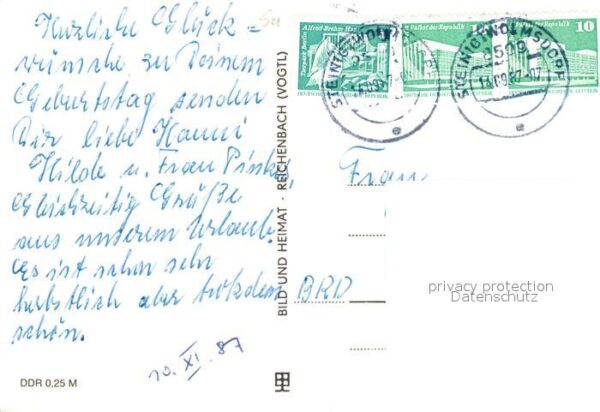 Herzliche Glück=
wünsche zu Deinem
Geburtstag senden
Dir liebe Hanni
Hilde u. Frau Pinks
Gleichzeitig Grüße
aus unserem Urlaub.
Es ist schon sehr
herbstlich aber trotzdem
schön.
DDR 0,25 M
10. XI. 87
BILD UND HEIMAT · REICHENBACH (VOGTL)
5a
Tierpark Berlin
Alfred-Brehm-Haus
Palast der Republik
10
Palast der Republik
10
STEINIGTWOLMSDORF
STEINIGTWOLMSDORF
8509
e
e
Frau
BRD
privacy protection
Datenschutz